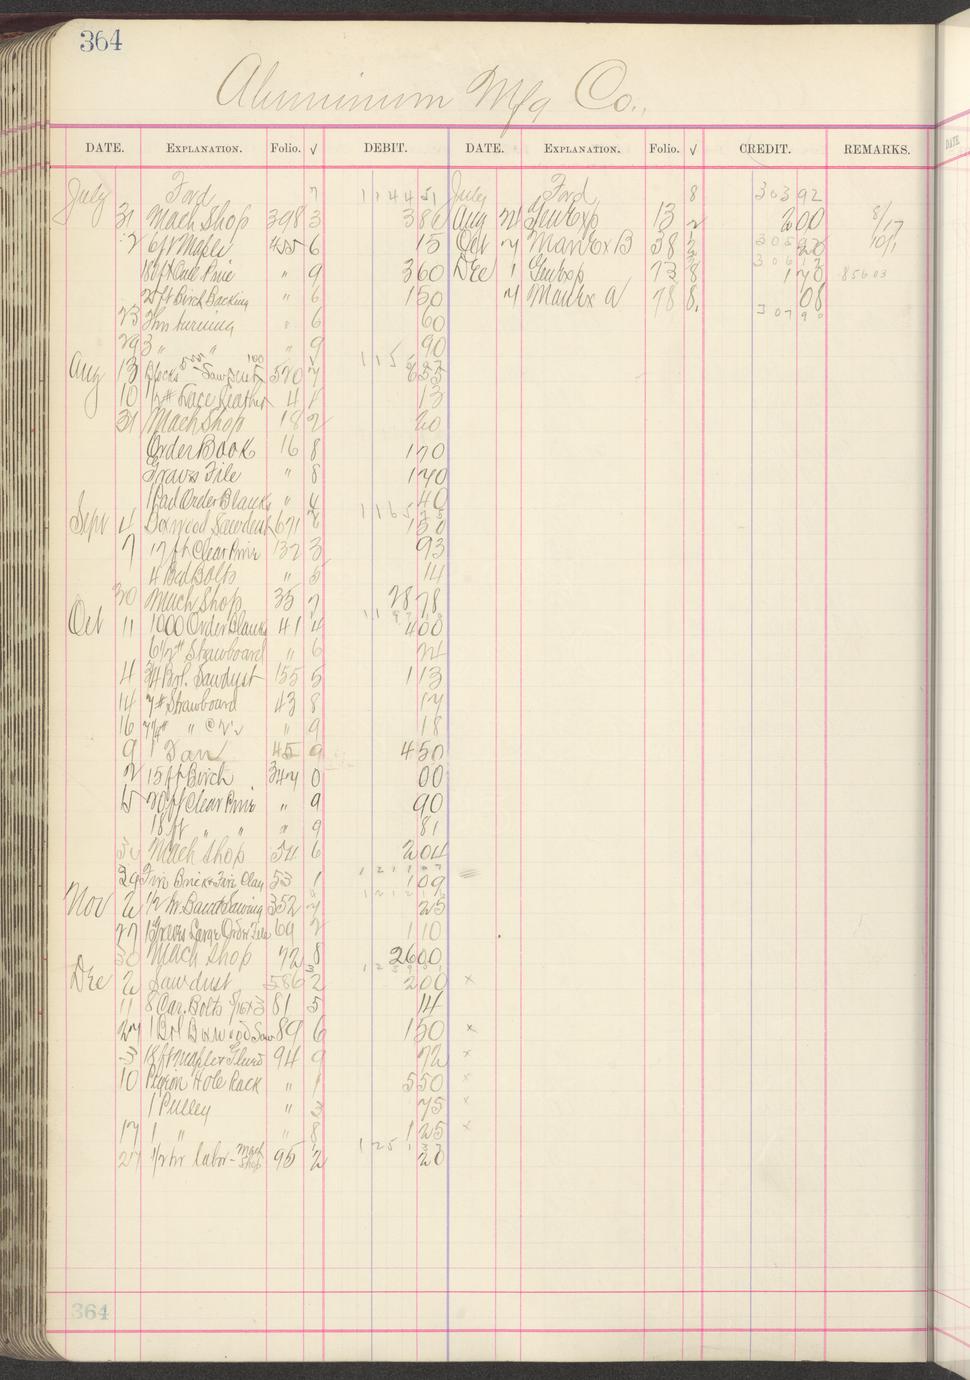 364
Aluminum Mfg Co.
DATE. EXPLANATION. Folio. √ DEBIT. DATE. EXPLANATION. Folio. √ CREDIT. REMARKS.
July Ford 7 1144 51 July Ford 8 303 92
31 Mach Shop 398 3 3 86 Aug Gen Exp 13 2 2 00 8/17
2 6 ft Maple 455 6 15 Oct 38 20 10/1
Cull Pine " 9 3 60 Dec 1 Gen Exp 73 8 1 70 856 03
25 ft Birch Backing " 6 1 50 78 8 08
23 turning " 6 60 307 90
29 3 " " " 9 90
Aug 13 Blocks Sawdust 570 7 6 55
10 1/2 # Lace Leather 4 1 13
31 Mach Shop 18 2 20
Order Book 16 8 1 70
File " 8 1 40
1 Pad Order Blanks " 4 40
Sept 4 Boxwood Sawdust 671 1 50
7 17 ft Clear Pine 132 3 93
4 Bolts " 5 14
30 Mach Shop 35 7 28 78
Oct 11 1000 Order Blanks 41 4 4 00
6 1/2 # Strawboard " 6 24
4 3/4 Brl. Sawdust 155 5 1 13
14 7 # Strawboard 43 8 17
16 " " 9 18
9 1 Fan 45 9 4 50
2 15 ft Birch 347 0 00
15 20 ft Clear Pine " 9 90
18 ft " " " 9 81
Mach Shop 54 6 2 04
29 Fire Brick & Fire Clay 53 1 1 09
Nov 2 1/2 hr. Band Sawing 352 7 25
27 1 Large Order File 69 2 1 10
30 Mach Shop 72 8 26 00
Dec 2 Sawdust 586 2 2 00 x
11 8 Car. Bolts 5/16 x 3 81 5 14
27 1 Brl Boxwood Saw 89 6 1 50 x
3 18 ft Maple & Glued 94 9 72 x
10 Pigeon Hole Rack " 1 5 50 x
1 Pulley " 3 75 x
17 1 " " 8 1 25 x
27 1/2 hr labor - Mach Shop 95 2 20
364